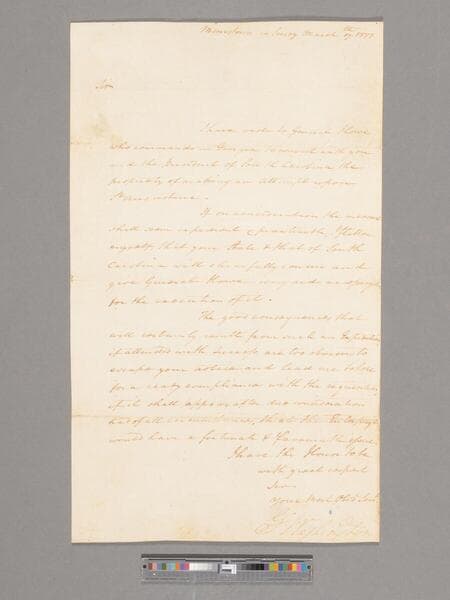 Morristown in Jersey March 17th 1777
Sir
I have wrote to General Howe
who commands in Georgia to consult with you
and the President of South Carolina the
propriety of making an attempt upon
St Augustine.
If on consideration the measure
shall seem expedient & practicable, I flatter
myself, that your State & that of South
Carolina will chearfully concur and
give General Howe every aid necessary
for the execution of it.
The good consequences that
will certainly result from such an Expedition
if attended with success are too obvious to
escape your notice and lead me to hope
for a ready compliance with the requisition,
if it shall appear after due consideration
had of all circumstances, that the Enterprize
would have a fortunate & favourable issue.
I have the Honor to be
with great respect
Sir
Your Most Obed Serv
Go Washington